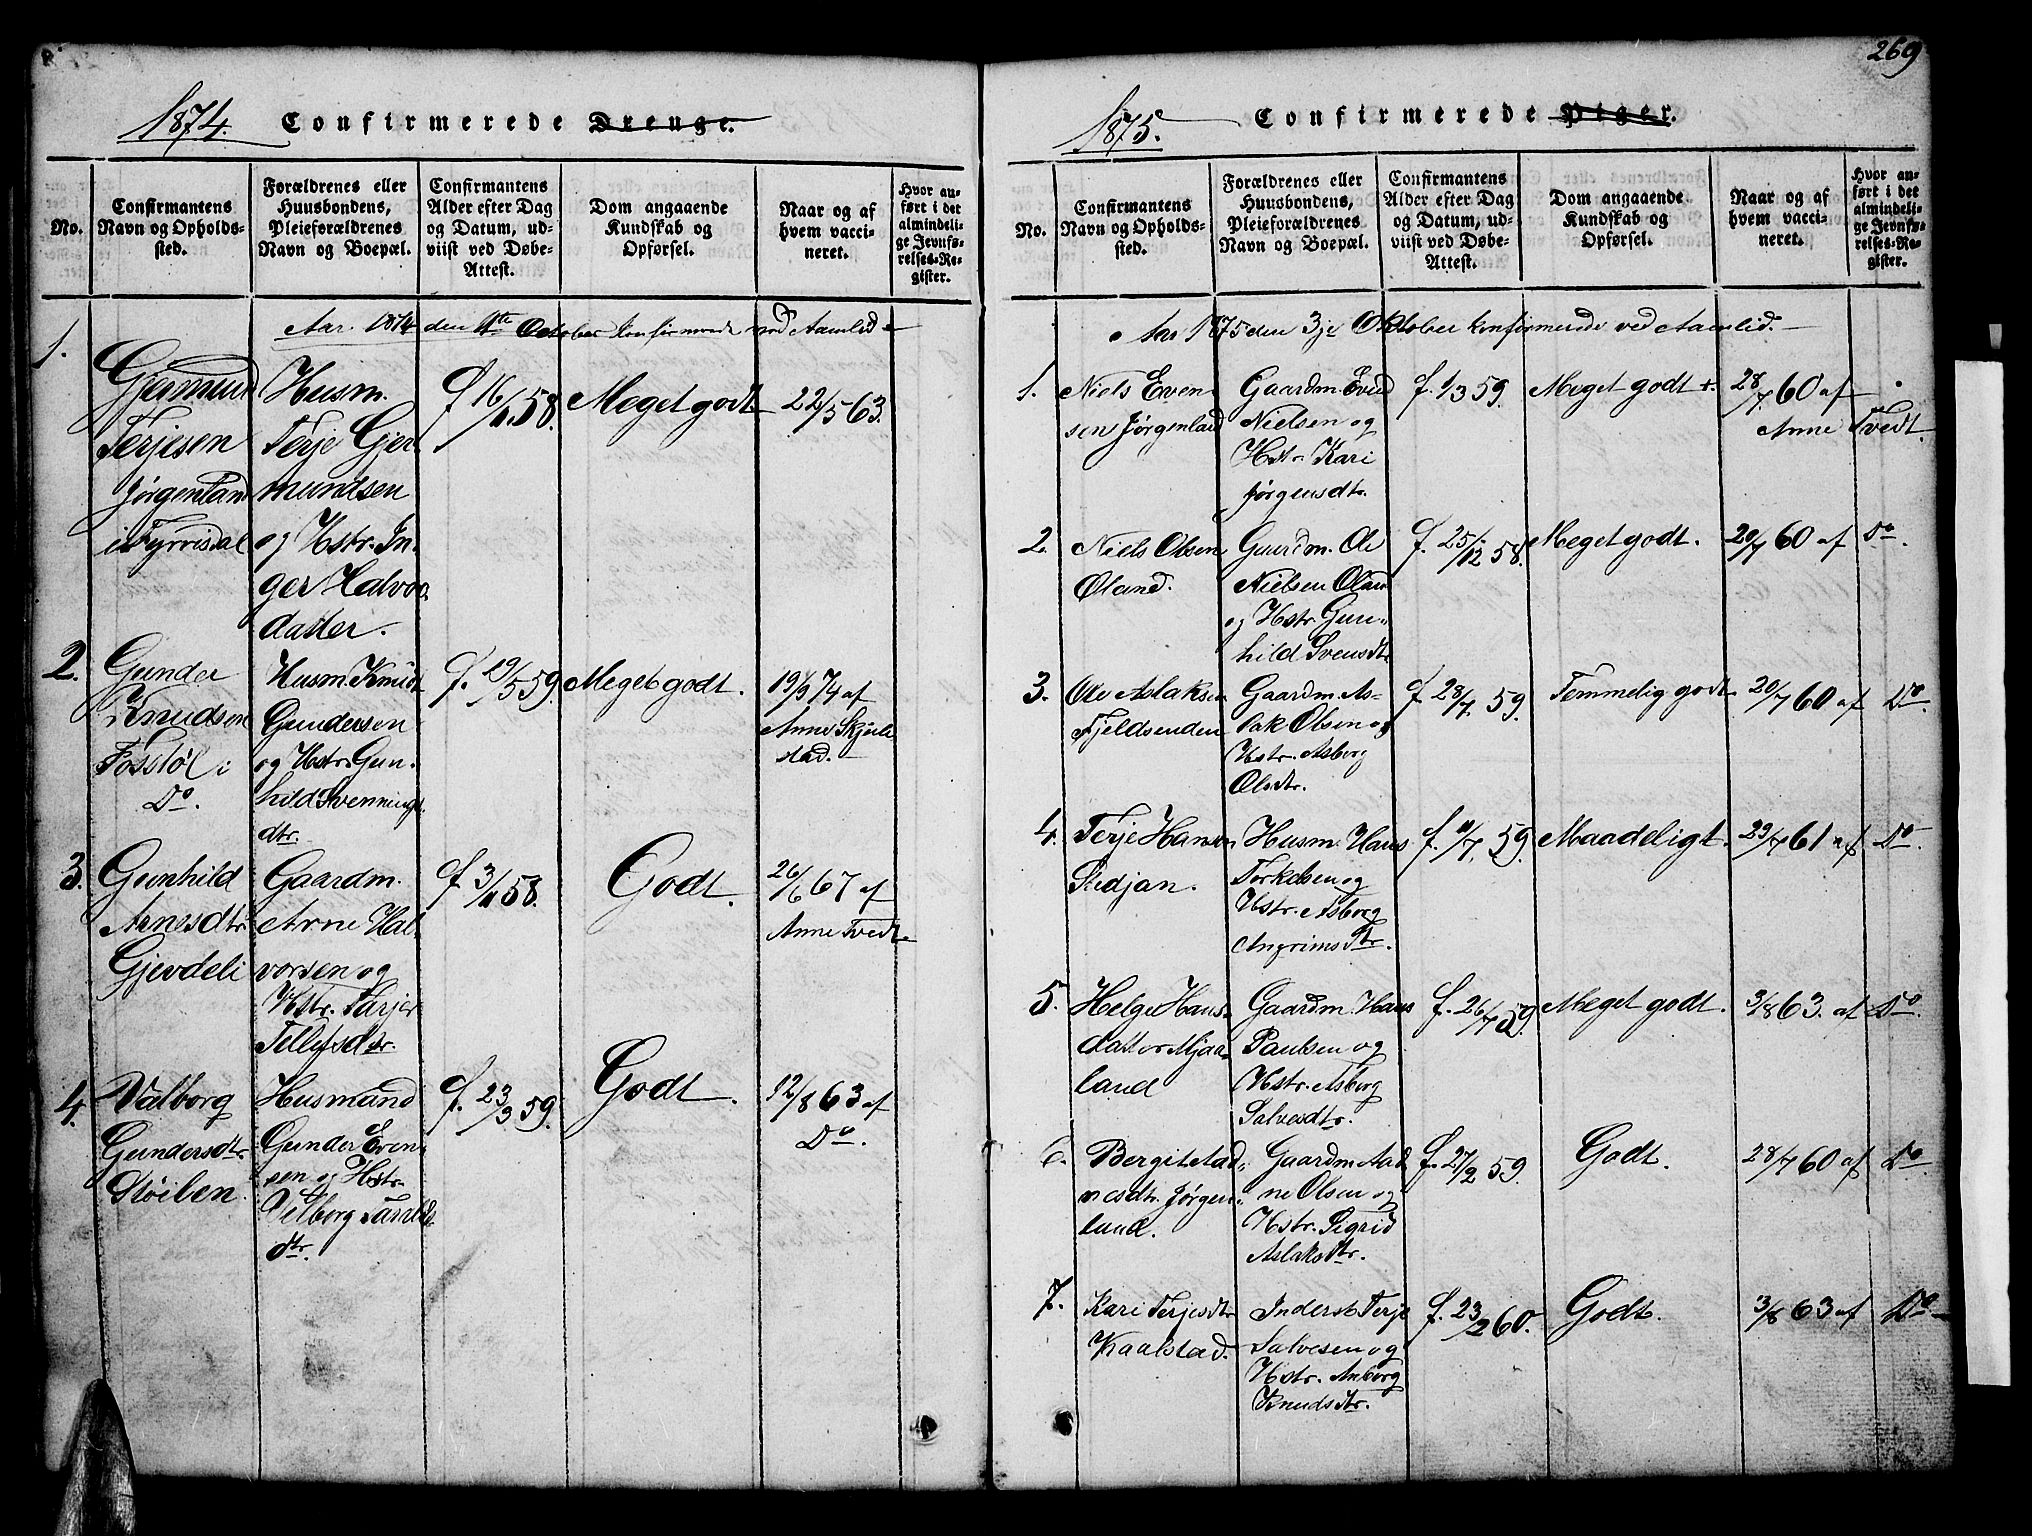 269
1874. Confirmerede Drenge.
No.
Confirmantens Navn og Opholds-sted.
Forældrenes eller Huusbondens, Pleieforældrenes Navn og Boepæl.
Confirmantens Alder efter Dag og Datum, ud-viist ved Døbe-Attest.
Dom angaaende Kundskab og Opførsel.
Naar og af hvem vacci-neret.
Hvor an-ført i det almindeli-ge Jevnfø-relses-Re-gister.
Aar 1874 den 4de October konfirmerede ved Aamlid
1.
Gjermund
Terjesen
Jørgenland
i Fyrrisdal
Husm.
Terje Gjer
mundsen
og Hstr. In-
ger Halvors
datter.
f 16/11 58.
Meget godt
22/5 63.
2.
Gunder
Knudsen
Fosstøl i
Do.
Husm. Knud
Gundersen
og Hstr. Gun-
hild Svennings
dtr.
f. 19/5 59.
Meget godt.
19/9 74 af
Anne Skjule
stad.
3.
Gunhild
Arnesdtr
Gjevdeli
Gaardm.
Arne Hal-
vorsen og
Hstr. Tarjer
Tellefsdtr.
f 3/11 58.
Godt.
26/6 67 af
Anne Tvedt
4.
Valborg
Gundersdtr
Støilen.
Husmand
Gunder Even
sen og Hstr.
Vilborg
dtr.
f. 23/3 59.
Godt.
12/8 63 af
Do.
1875. Confirmerede Piger.
No.
Confirmantens Navn og Opholds-sted.
Forældrenes eller Huusbondens, Pleieforældrenes Navn og Boepæl.
Confirmantens Alder efter Dag og Datum, ud-viist ved Døbe-Attest.
Dom angaaende Kundskab og Opførsel.
Naar og af hvem vacci-neret.
Hvor an-ført i det almindeli-ge Jevnfø-relses-Re-gister.
Aar 1875 den 3je Oktober konfirmerede ved Aamlid.
1.
Niels Even
sen Jørgenland
Gaardm. Evend
Nielsen og
Hstr Kari
Jørgensdtr.
f. 1/3 59.
Meget godt +.
28/7 60 af
Anne Tvedt.
2.
Niels Olsen
Øland.
Gaardm. Ole
Nielsen Øland
og Hstr. Gun-
hild Svensdtr
f. 25/12 58.
Meget godt.
20/7 60 af
Do.
3.
Ole Aslaksen
Fjeldsenden
Gaardm. As-
lak Olsen og
Hstr. Asborg
Olsdtr.
f 28/7 59.
Temmelig godt
20/7 60 af
Do.
4.
Terje Hansen
Stedjan.
Husm. Hans
Torkelsen og
Hstr. Asborg
Angrimsdtr.
f. 11/7 59.
Maadeligt.
29/7 61 af
Do.
5.
Helge Hans-
datter Mjaa-
land
Gaardm. Hans
Paulsen og
Hstr. Asborg
Salvesdtr.
f. 26/7 59.
Meget godt.
3/8 63. af
Do.
6.
Bergit Aad-
nesdtr. Jørgen-
land.
Gaardm. Aad
ne Olsen og
Hstr. Sigrid
Aslaksdtr.
f. 27/2 59.
Godt.
28/7 60 af
Do
7.
Kari Terjesdtr
Kaalstad.
Inderst Terje
Salvesen og
Hstr. Anborg
Knudsdtr.
f. 23/2 60.
Godt.
3/8 63 af
Do